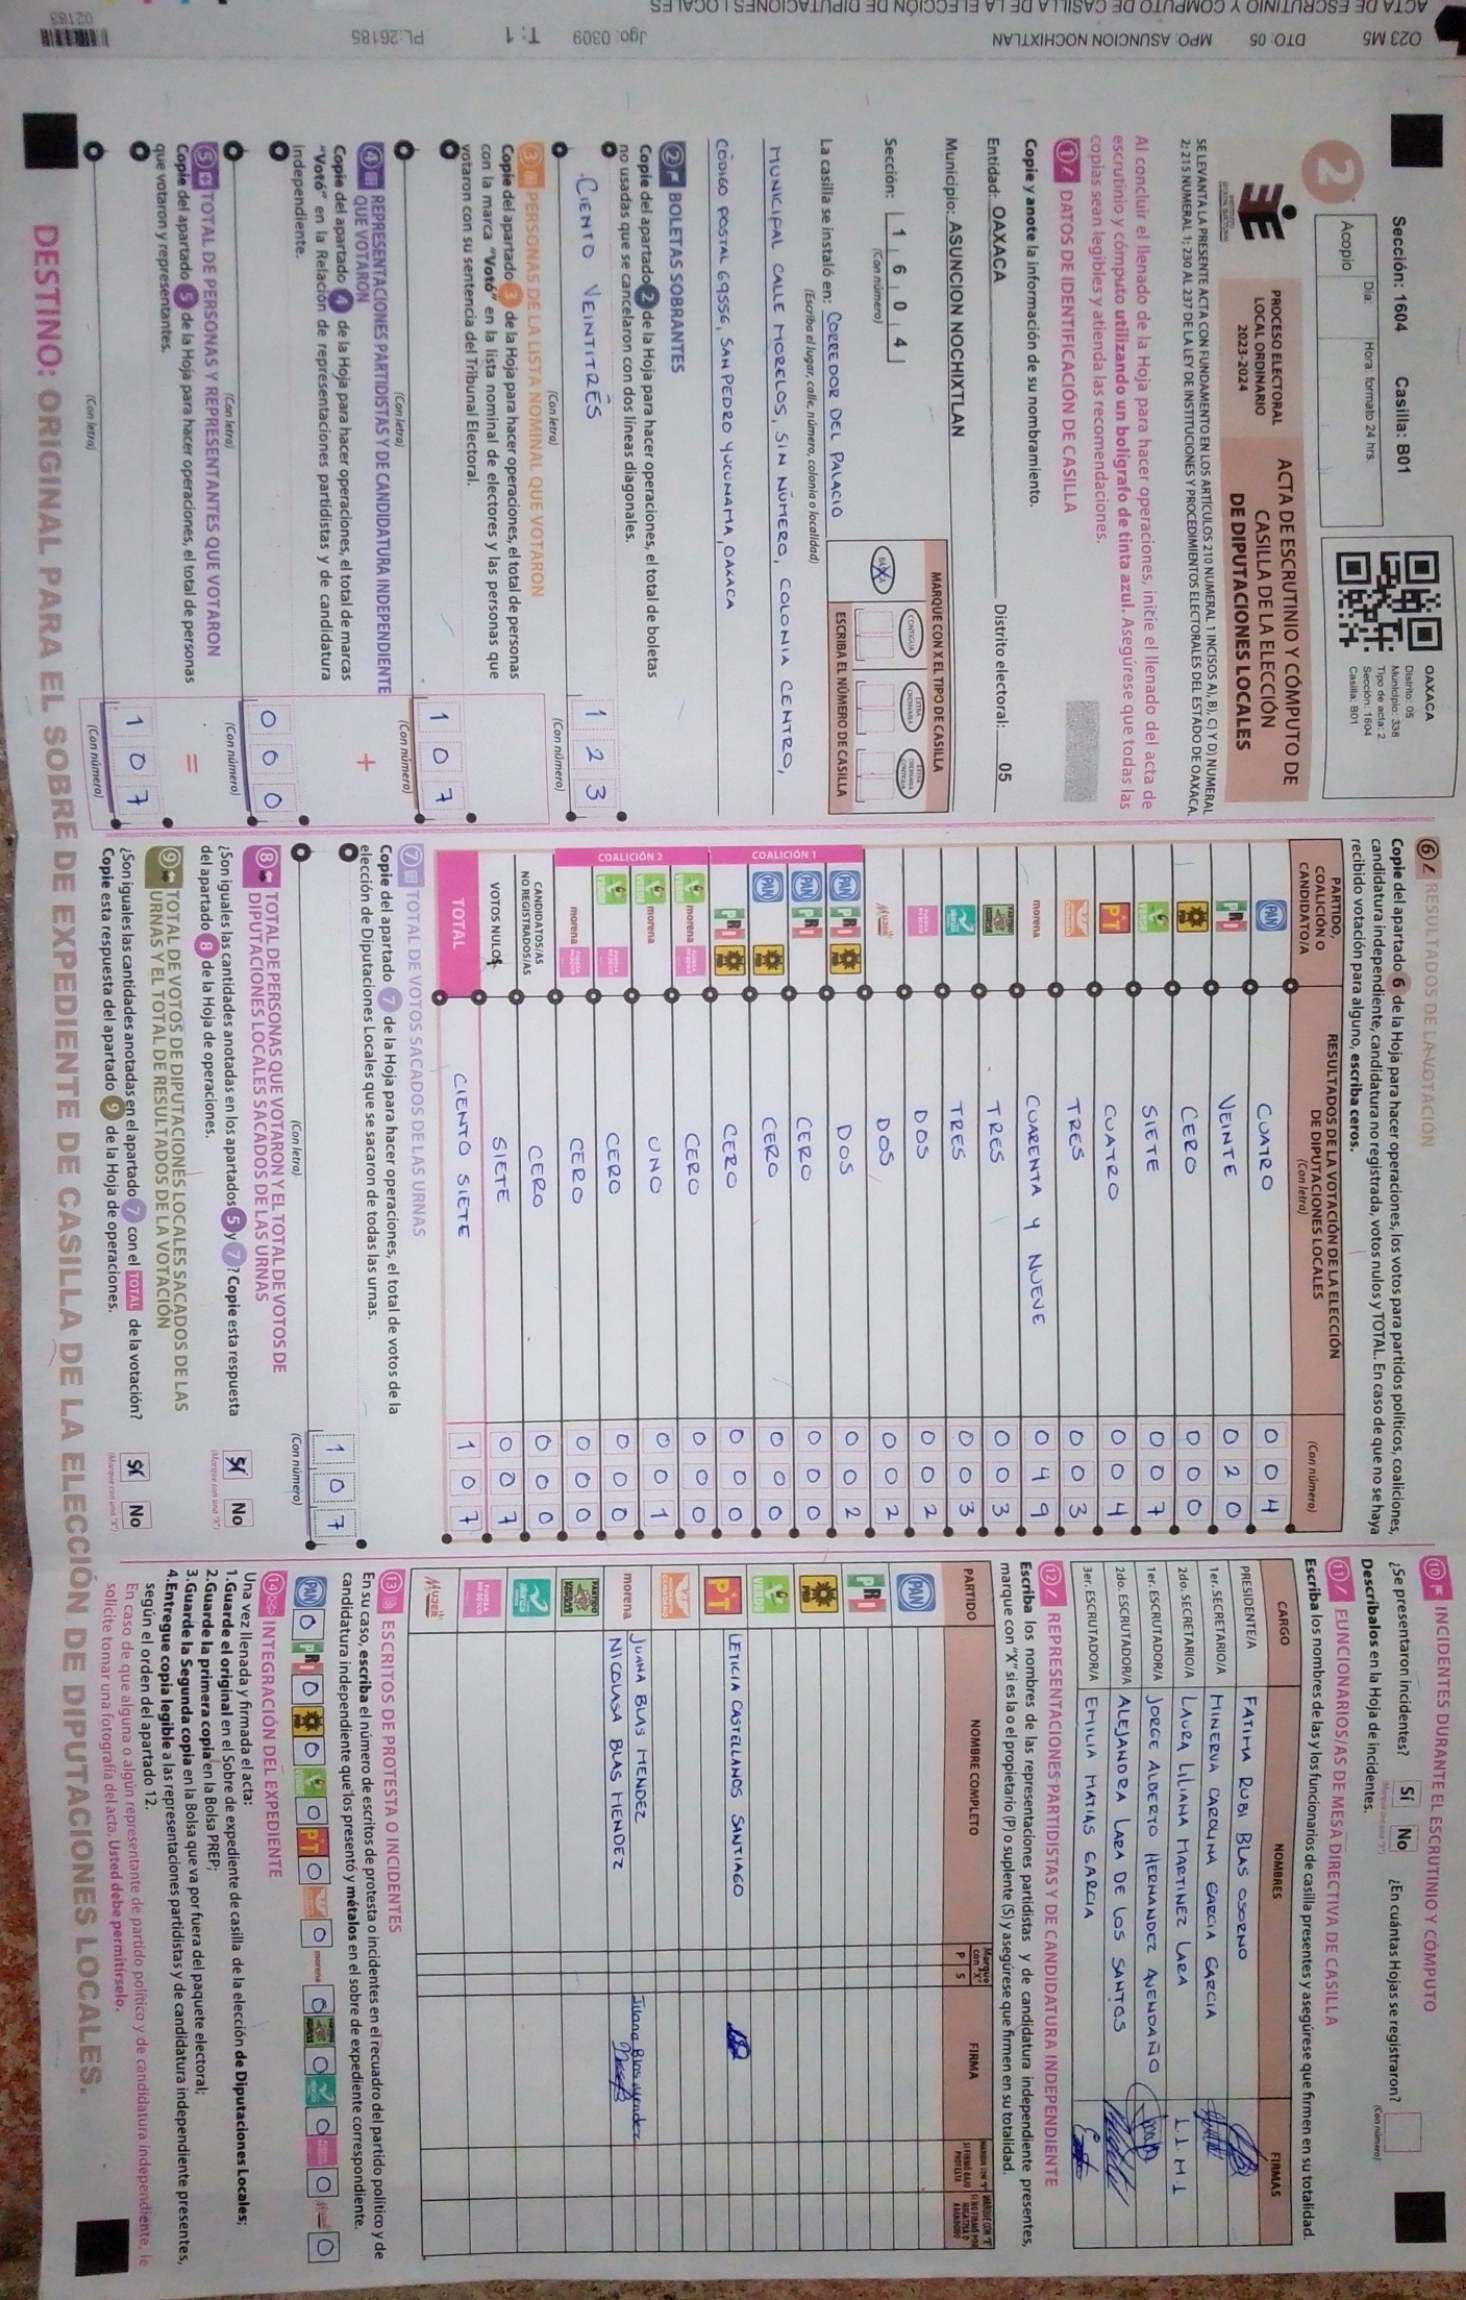 ACTA DE ESCRUTINIO Y CÓMPUTO DE CASILLA DE LA ELECCIÓN DE DIPUTACIONES LOCALES
O23 M5 DTO: 05 MPO: ASUNCION NOCHIXTLAN Jgo: 0309 T: 1 PL:26185
02183
Sección: 1604 Casilla: B01
2
Acopio
Día: Hora: formato 24 hrs.
OAXACA
Distrito: 05
Municipio: 338
Tipo de acta: 2
Sección: 1604
Casilla: B01
PROCESO ELECTORAL
LOCAL ORDINARIO
2023-2024
ACTA DE ESCRUTINIO Y CÓMPUTO DE
CASILLA DE LA ELECCIÓN
DE DIPUTACIONES LOCALES
SE LEVANTA LA PRESENTE ACTA CON FUNDAMENTO EN LOS ARTÍCULOS 210 NUMERAL 1 INCISOS A), B), C) Y D) NUMERAL
2; 215 NUMERAL 1; 230 AL 237 DE LA LEY DE INSTITUCIONES Y PROCEDIMIENTOS ELECTORALES DEL ESTADO DE OAXACA.
Al concluir el llenado de la Hoja para hacer operaciones, inicie el llenado del acta de
escrutinio y cómputo utilizando un bolígrafo de tinta azul. Asegúrese que todas las
copias sean legibles y atienda las recomendaciones.
1 DATOS DE IDENTIFICACIÓN DE CASILLA
Copie y anote la información de su nombramiento.
Entidad: OAXACA Distrito electoral: 05
Municipio: ASUNCION NOCHIXTLAN
Sección: 1 6 0 4
(Con número)
MARQUE CON X EL TIPO DE CASILLA
ESCRIBA EL NÚMERO DE CASILLA
La casilla se instaló en: CORREDOR DEL PALACIO
(Escriba el lugar, calle, número, colonia o localidad)
MUNICIPAL CALLE MORELOS, SIN NÚMERO, COLONIA CENTRO,
CÓDIGO POSTAL 69556, SAN PEDRO YUCUNAMA, OAXACA
2 BOLETAS SOBRANTES
Copie del apartado 2 de la Hoja para hacer operaciones, el total de boletas
no usadas que se cancelaron con dos líneas diagonales.
CIENTO VEINTITRÉS 1 2 3
(Con letra) (Con número)
3 PERSONAS DE LA LISTA NOMINAL QUE VOTARON
Copie del apartado 3 de la Hoja para hacer operaciones, el total de personas
con la marca "Votó" en la lista nominal de electores y las personas que
votaron con su sentencia del Tribunal Electoral.
1 0 7
(Con letra) (Con número)
4 REPRESENTACIONES PARTIDISTAS Y DE CANDIDATURA INDEPENDIENTE
QUE VOTARON
+
Copie del apartado 4 de la Hoja para hacer operaciones, el total de marcas
"Votó" en la Relación de representaciones partidistas y de candidatura
independiente.
0 0 0
(Con letra) (Con número)
5 TOTAL DE PERSONAS Y REPRESENTANTES QUE VOTARON
=
Copie del apartado 5 de la Hoja para hacer operaciones, el total de personas
que votaron y representantes.
1 0 7
(Con letra) (Con número)
6 RESULTADOS DE LA VOTACIÓN
Copie del apartado 6 de la Hoja para hacer operaciones, los votos para partidos políticos, coaliciones,
candidatura independiente, candidatura no registrada, votos nulos y TOTAL. En caso de que no se haya
recibido votación para alguno, escriba ceros.
PARTIDO,
COALICIÓN O
CANDIDATO/A
RESULTADOS DE LA VOTACIÓN DE LA ELECCIÓN
DE DIPUTACIONES LOCALES
(Con letra) (Con número)
PAN CUATRO 0 0 4
PRI VEINTE 0 2 0
PRD CERO 0 0 0
VERDE SIETE 0 0 7
PT CUATRO 0 0 4
TRES 0 0 3
morena CUARENTA Y NUEVE 0 4 9
TRES 0 0 3
TRES 0 0 3
DOS 0 0 2
Mujer DOS 0 0 2
COALICIÓN 1
PAN PRI PRD DOS 0 0 2
PAN PRI CERO 0 0 0
PAN PRD CERO 0 0 0
PRI PRD CERO 0 0 0
COALICIÓN 2
VERDE morena CERO 0 0 0
VERDE morena UNO 0 0 1
VERDE CERO 0 0 0
morena CERO 0 0 0
CANDIDATOS/AS
NO REGISTRADOS/AS CERO 0 0 0
VOTOS NULOS SIETE 0 0 7
TOTAL CIENTO SIETE 1 0 7
7 TOTAL DE VOTOS SACADOS DE LAS URNAS
Copie del apartado 7 de la Hoja para hacer operaciones, el total de votos de la
elección de Diputaciones Locales que se sacaron de todas las urnas.
1 0 7
(Con letra) (Con número)
8 TOTAL DE PERSONAS QUE VOTARON Y EL TOTAL DE VOTOS DE
DIPUTACIONES LOCALES SACADOS DE LAS URNAS
¿Son iguales las cantidades anotadas en los apartados 5 y 7? Copie esta respuesta
del apartado 8 de la Hoja de operaciones.
Sí No
(Marque con una "X")
9 TOTAL DE VOTOS DE DIPUTACIONES LOCALES SACADOS DE LAS
URNAS Y EL TOTAL DE RESULTADOS DE LA VOTACIÓN
¿Son iguales las cantidades anotadas en el apartado 7 con el TOTAL de la votación?
Copie esta respuesta del apartado 9 de la Hoja de operaciones.
Sí No
(Marque con una "X")
10 INCIDENTES DURANTE EL ESCRUTINIO Y CÓMPUTO
¿Se presentaron incidentes? Sí No ¿En cuántas Hojas se registraron?
(Marque con una "X") (Con número)
Descríbalos en la Hoja de incidentes.
11 FUNCIONARIOS/AS DE MESA DIRECTIVA DE CASILLA
Escriba los nombres de las y los funcionarios de casilla presentes y asegúrese que firmen en su totalidad.
CARGO NOMBRES FIRMAS
PRESIDENTE/A FATIMA RUBI BLAS OSORNO
1er. SECRETARIO/A MINERVA CAROLINA GARCIA GARCIA
2do. SECRETARIO/A LAURA LILIANA MARTINEZ LARA
1er. ESCRUTADOR/A JORGE ALBERTO HERNANDEZ AVENDAÑO
2do. ESCRUTADOR/A ALEJANDRA LARA DE LOS SANTOS
3er. ESCRUTADOR/A EMILIA MATIAS GARCIA
12 REPRESENTACIONES PARTIDISTAS Y DE CANDIDATURA INDEPENDIENTE
Escriba los nombres de las representaciones partidistas y de candidatura independiente presentes,
marque con "X" si es la o el propietario (P) o suplente (S) y asegúrese que firmen en su totalidad.
PARTIDO NOMBRE COMPLETO Marque con "X" P S FIRMA
PAN
PRI
PRD
VERDE
PT LETICIA CASTELLANOS SANTIAGO
morena JUANA BLAS MENDEZ
NICOLASA BLAS MENDEZ
Mujer
13 ESCRITOS DE PROTESTA O INCIDENTES
En su caso, escriba el número de escritos de protesta o incidentes en el recuadro del partido político y de
candidatura independiente que los presentó y métalos en el sobre de expediente correspondiente.
PAN 0 PRI 0 PRD 0 VERDE 0 PT 0 0 morena 0 0 0 0 0
14 INTEGRACIÓN DEL EXPEDIENTE
Una vez llenada y firmada el acta:
1.Guarde el original en el Sobre de expediente de casilla de la elección de Diputaciones Locales;
2.Guarde la primera copia en la Bolsa PREP;
3.Guarde la Segunda copia en la Bolsa que va por fuera del paquete electoral;
4.Entregue copia legible a las representaciones partidistas y de candidatura independiente presentes,
según el orden del apartado 12.
En caso de que alguna o algún representante de partido político y de candidatura independiente, le
solicite tomar una fotografía del acta, Usted debe permitírselo.
DESTINO: ORIGINAL PARA EL SOBRE DE EXPEDIENTE DE CASILLA DE LA ELECCIÓN DE DIPUTACIONES LOCALES.